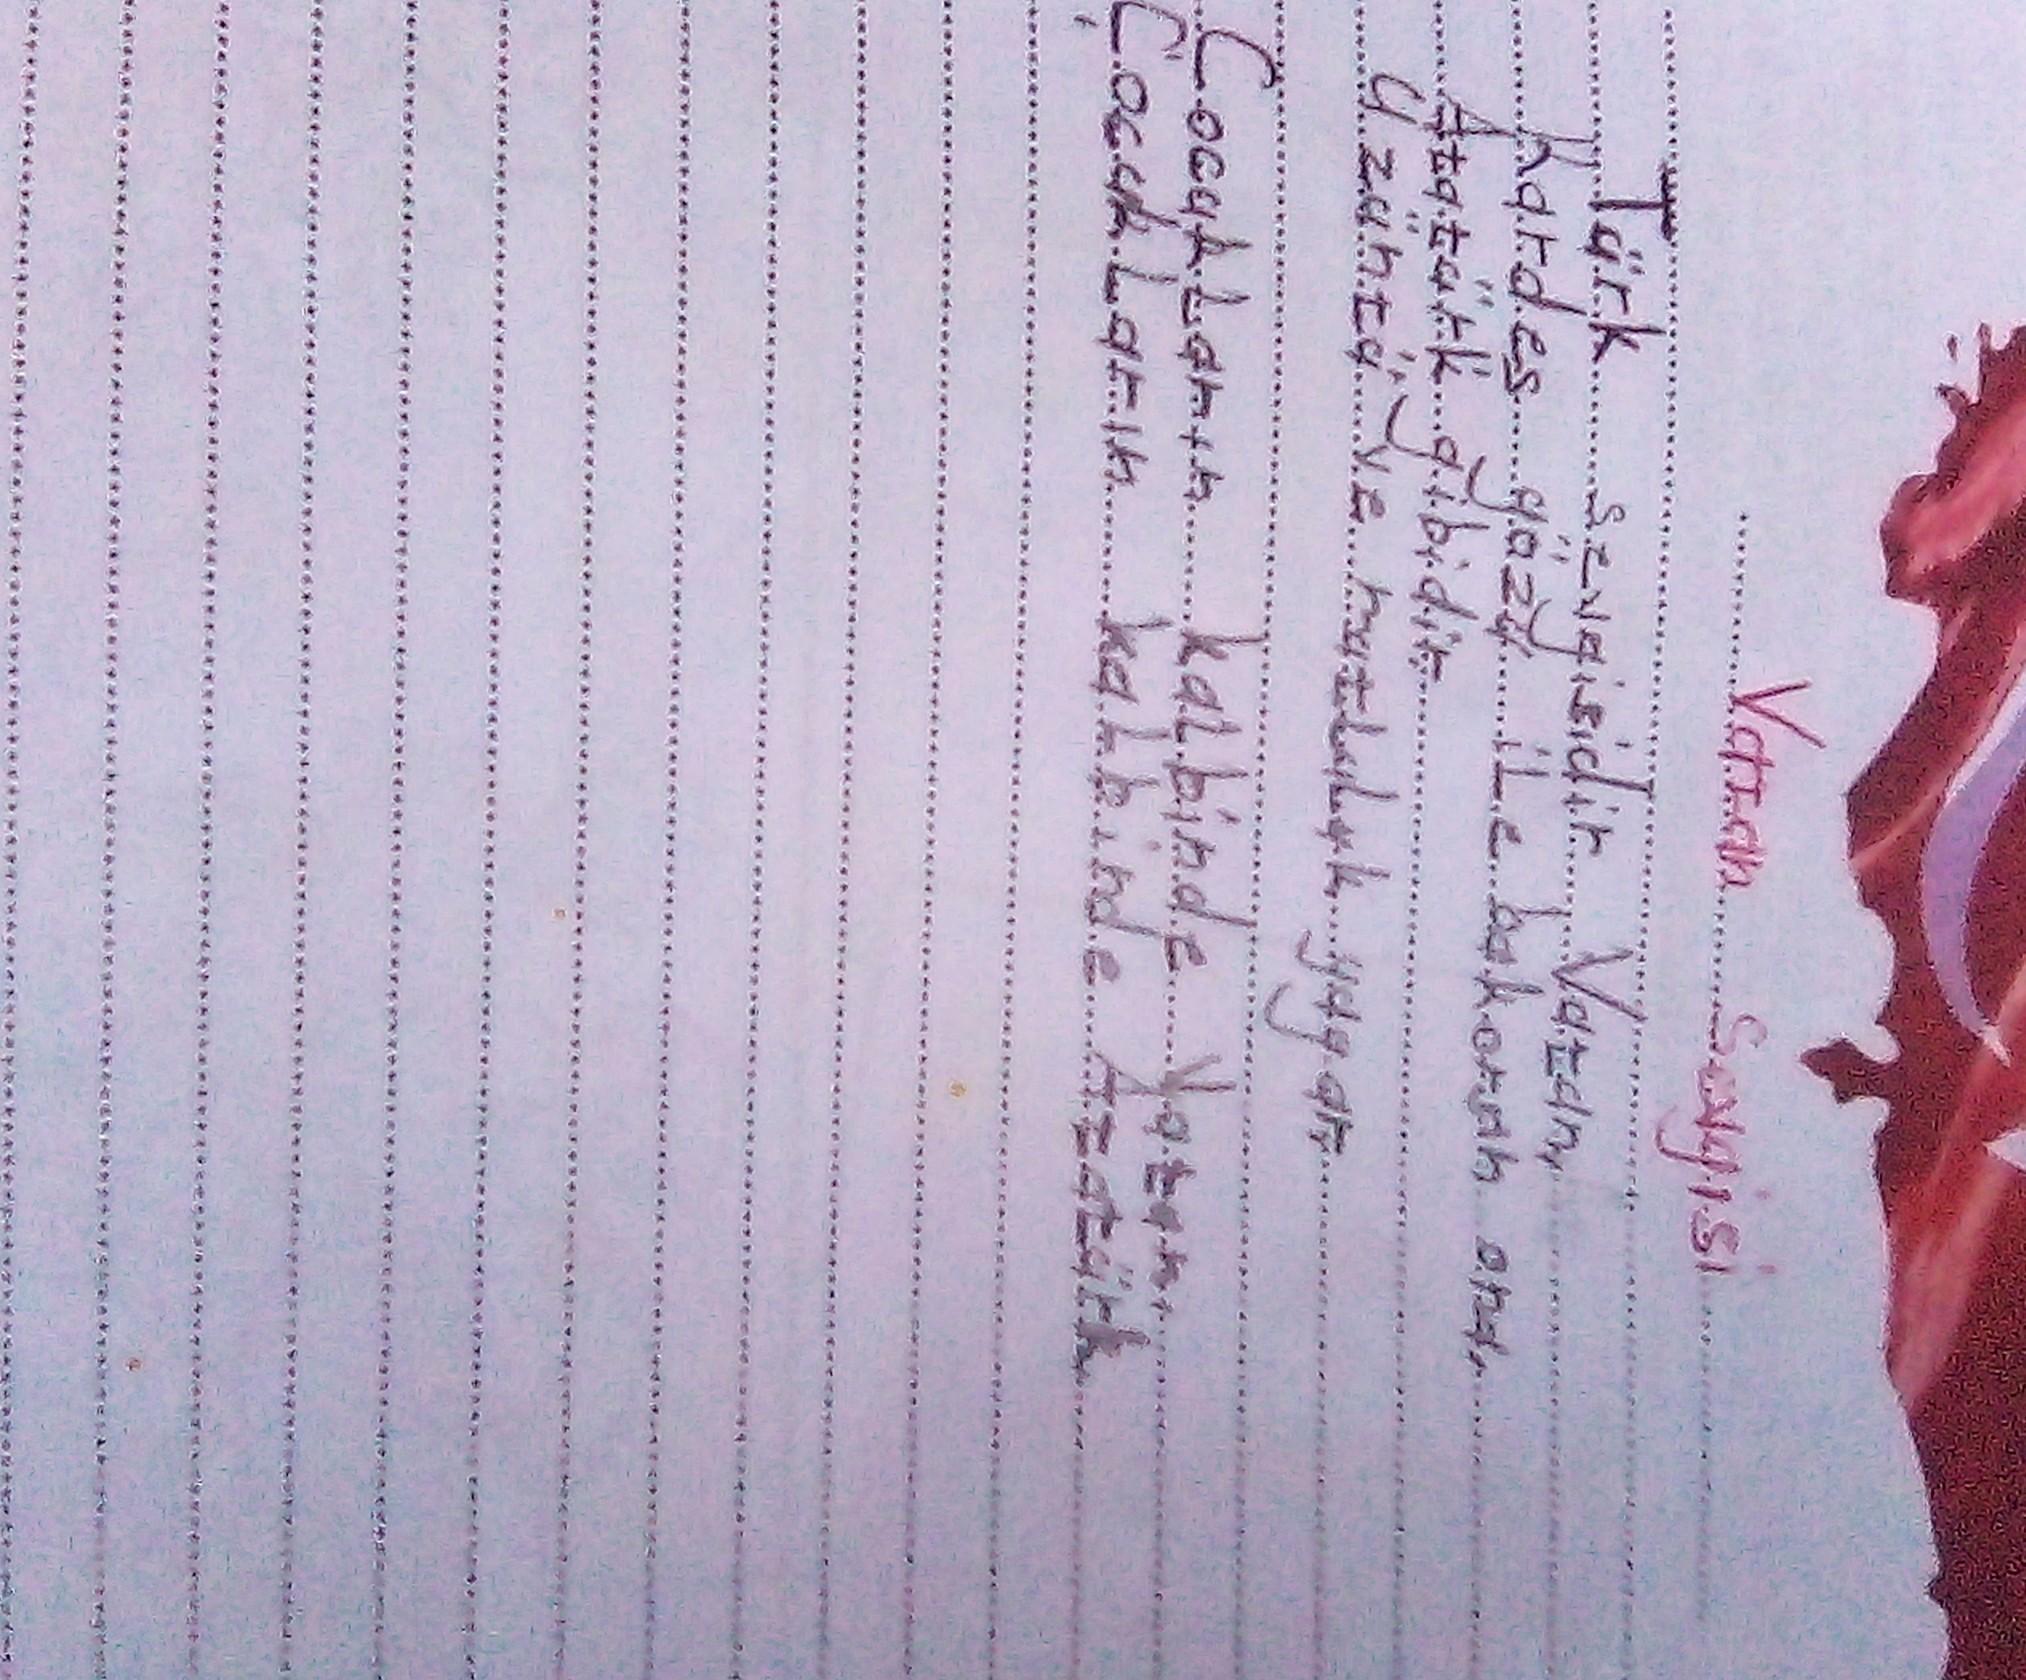 Vatan Sevgisi
Türk sevgisidir Vatan,
Kardeş gözü iLe bakarak ona,
Atatürk gibidir
Üzüntü ve mutLuLuk yaşar
ÇocukLarın kaLbinde Vatan,
ÇocukLarın kaLbinde Atatürk,